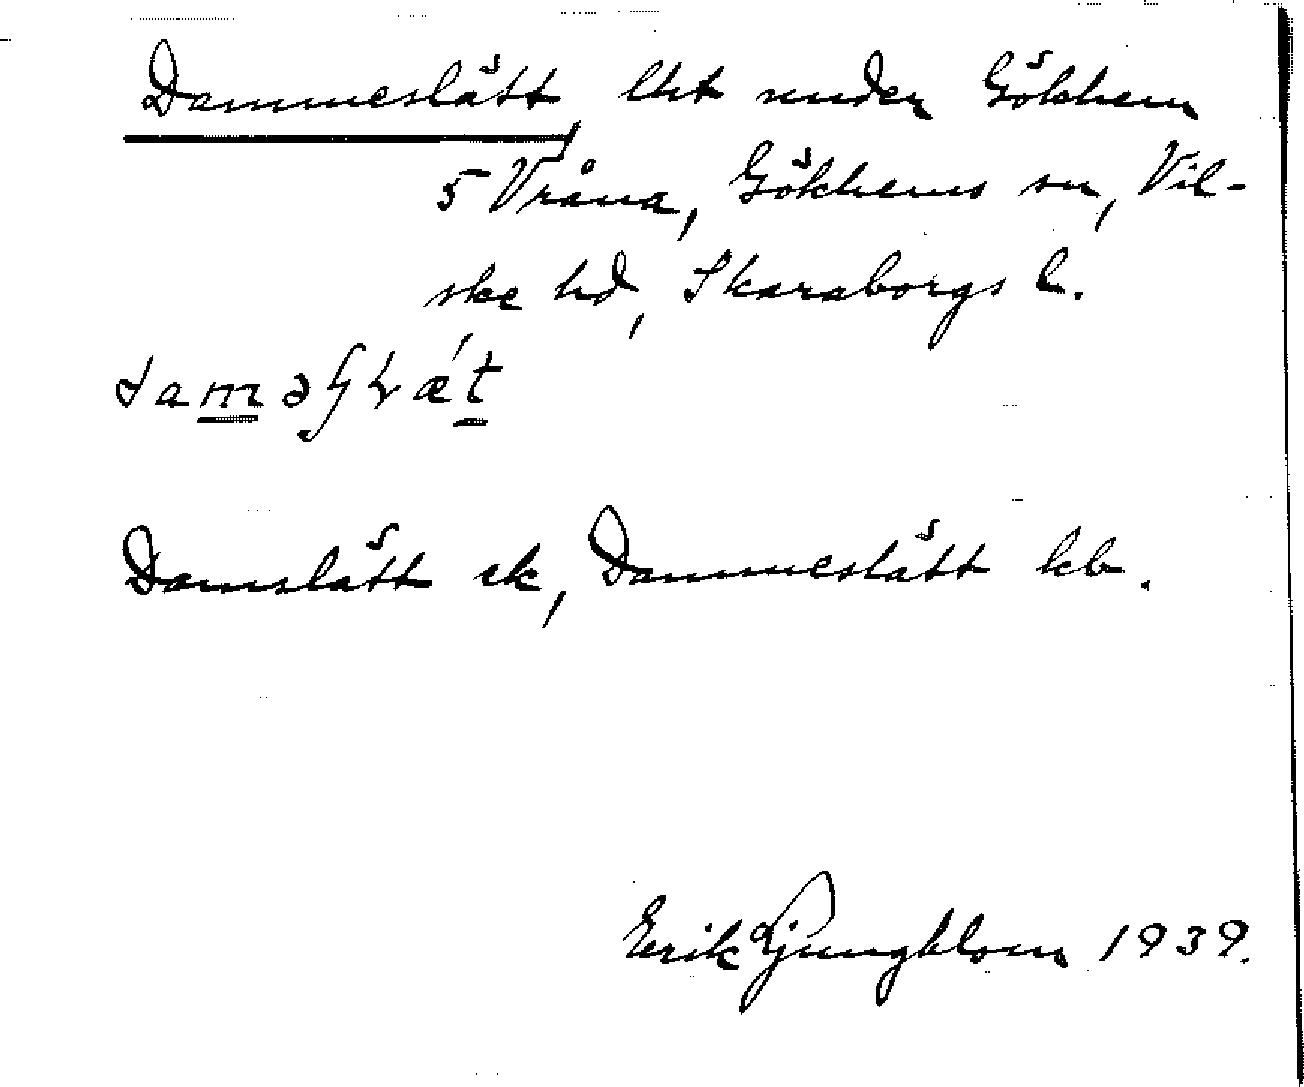 Dammeslätt lht under Gökhem
5 Vråna, Gökhems sn, Vil-
ske hd, Skaraborgs l.
Damslätt ek, Dammeslätt kb.
Erik Ljungblom 1939.